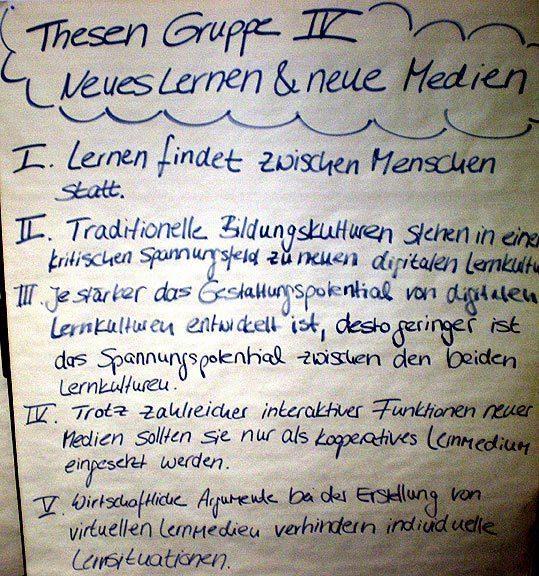 Thesen Gruppe IV
Neues Lernen & neue Medien
I. Lernen findet zwischen Menschen
statt.
II. Traditionelle Bildungskulturen stehen in einem
kritischen Spannungsfeld zu neuen digitalen Lernkultu
III. Je stärker das Gestaltungspotential von digitalen
Lernkulturen entwickelt ist, desto geringer ist
das Spannungspotential zwischen den beiden
Lernkulturen.
IV. Trotz zahlreicher interaktiver Funktionen neuer
Medien sollten sie nur als kooperatives Lernmedium
eingesetzt werden.
V. Wirtschaftliche Argumente bei der Erstellung von
virtuellen Lernmedien verhindern individuelle
Lernsituationen.